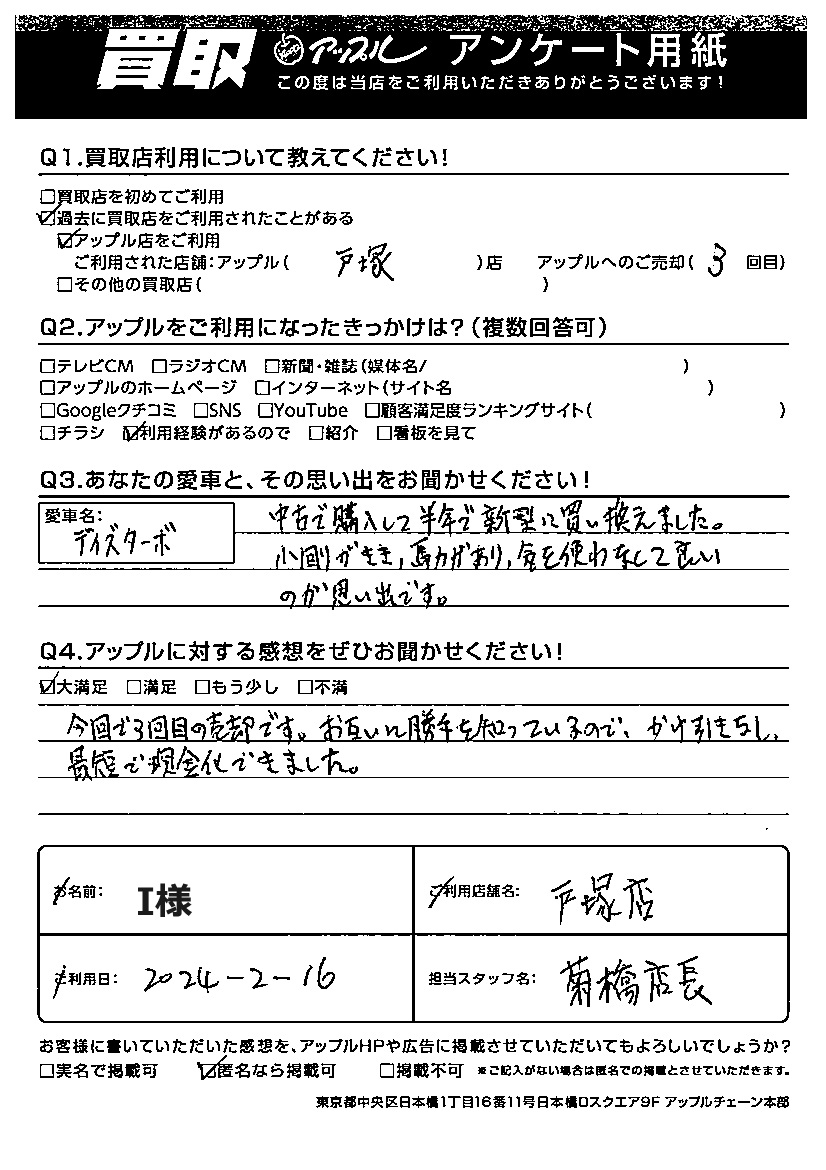 買取 アップル アンケート用紙
この度は当店をご利用いただきありがとうございます!
Q1.買取店利用について教えてください!
□買取店を初めてご利用
☑過去に買取店をご利用されたことがある
☑アップル店をご利用
ご利用された店舗:アップル( 戸塚 )店 アップルへのご売却( 3 回目)
□その他の買取店( )
Q2.アップルをご利用になったきっかけは?(複数回答可)
□テレビCM □ラジオCM □新聞・雑誌(媒体名/ )
□アップルのホームページ □インターネット(サイト名 )
□Googleクチコミ □SNS □YouTube □顧客満足度ランキングサイト( )
□チラシ ☑利用経験があるので □紹介 □看板を見て
Q3.あなたの愛車と、その思い出をお聞かせください!
愛車名:
デイズターボ
中古で購入して半年で新型に買い換えました。
小回りがきき,馬力があり,気を使わなくて良い
のが思い出です。
Q4.アップルに対する感想をぜひお聞かせください!
☑大満足 □満足 □もう少し □不満
今回で3回目の売却です。お互いに勝手を知っているので、かけ引きなし、
最短で現金化できました。
お名前: I様 ご利用店舗名: 戸塚店
ご利用日: 2024-2-16 担当スタッフ名: 菊橋店長
お客様に書いていただいた感想を、アップルHPや広告に掲載させていただいてもよろしいでしょうか?
□実名で掲載可 ☑匿名なら掲載可 □掲載不可 ※ご記入がない場合は匿名での掲載とさせていただきます。
東京都中央区日本橋1丁目16番11号日本橋ロスクエア9F アップルチェーン本部